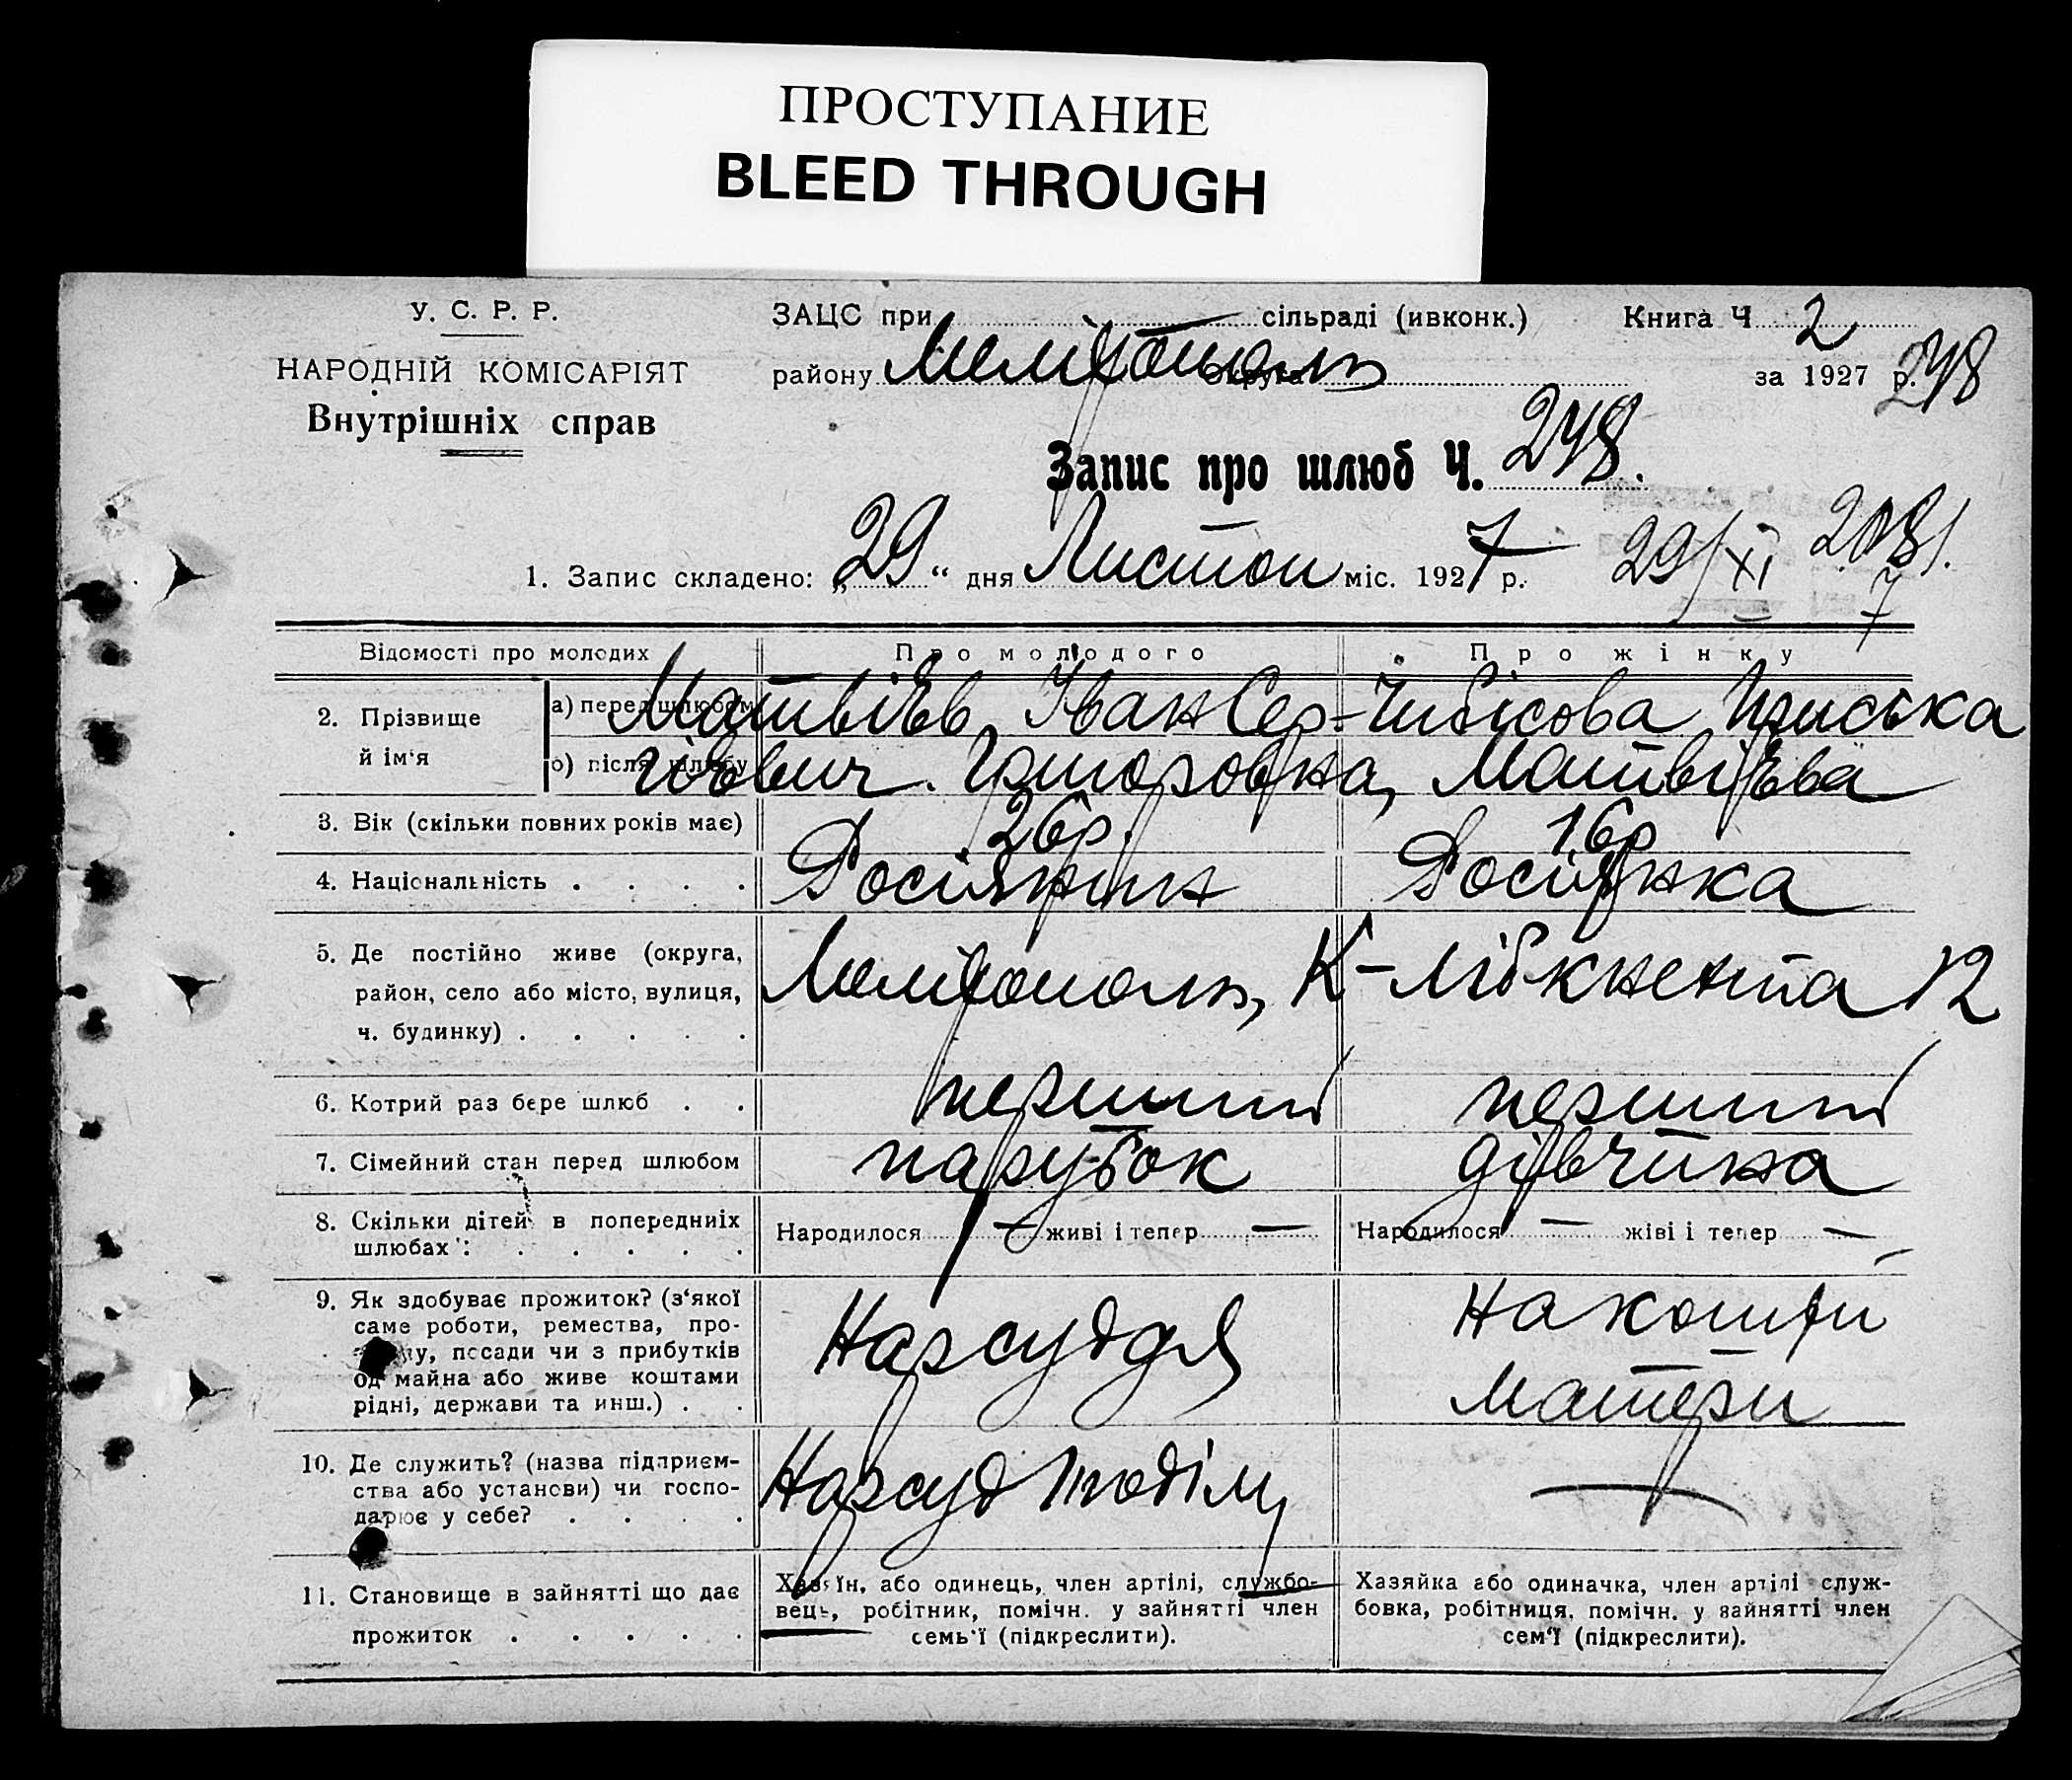 ПРОСТУПАНИЕ
BLEED THROUGH
У. С. Р. Р.
НАРОДНІЙ КОМІСАРІЯТ
Внутрішніх справ
ЗАЦС при сільраді (ивконк.)
району Мелітополь округа
Книга Ч 2
за 1927 р.
248
Запис про шлюб Ч. 248.
1. Запис складено: „29“ дня Листоп міс. 1927 р. 29/XI 7
Відомості про молодих Про молодого Про жінку
2. Прізвище й ім'я
а) перед шлюбом Матвіїв Іван Сер- Чибісова Приська
б) після шлюбу гійович. Григоровна, Матвієва
3. Вік (скільки повних років має) 26р. 16р
4. Національність . . . . Росіянин Росіянка
5. Де постійно живе (округа,
район, село або місто, вулиця,
ч. будинку) . . . . .
Мелітополь, К-Лібкнехта 12
6. Котрий раз бере шлюб . . перший перший
7. Сімейний стан перед шлюбом парубок дівчина
8. Скільки дітей в попередниіх
шлюбах : . . . . .
Народилося — живі і тепер — Народилося — жіві і тепер —
9. Як здобуває прожиток? (з'якої
саме роботи, ремества, про-
мислу, посади чи з прибутків
од майна або живе коштами
рідні, держави та инш.) . .
Нарсуддя
На кошти
матери
10. Де служить? (назва підприєм-
ства або установи) чи госпо-
дарює у себе? . . . .
Нарсуд —
11. Становище в зайнятті що дає
прожиток . . . . .
Хазяїн, або одинець, член артілі, службо-
вець, робітник, помічн. у зайнятті член
семь'ї (підкреслити).
Хазяйка або одиначка, член артілі служ-
бовка, робітниця, помічн. у зайнятті член
сем'ї (підкреслити).